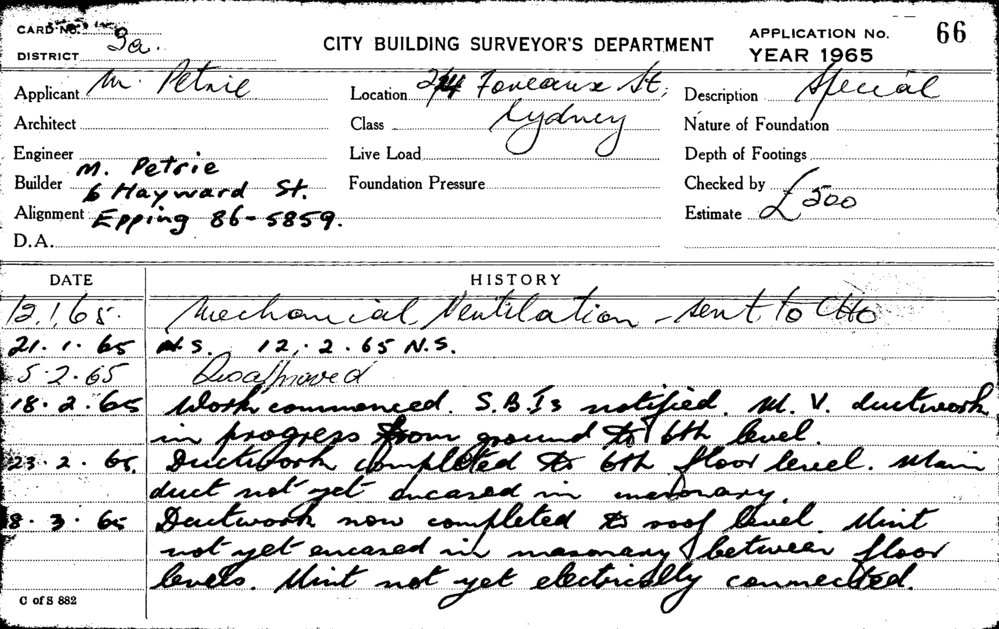 CARD No.
DISTRICT 9a.
CITY BUILDING SURVEYOR'S DEPARTMENT
APPLICATION No. 66
YEAR 1965
Applicant M. Petrie
Location Foveaux St,
Sydney
Description Special
Architect
Class
Nature of Foundation
Engineer
Live Load
Depth of Footings
Builder M. Petrie
6 Hayward St.
Foundation Pressure
Checked by
Alignment Epping 86-5859.
Estimate £500
D.A.
DATE HISTORY
12.1.65. Mechanical Ventilation - sent to CHO
21.1.65 N.S. 12.2.65 N.S.
5.2.65 Disapproved
18.2.65 Work commenced. S.B.Is notified. M.V. ductwork
in progress from ground to 6th level.
23.2.65. Ductwork completed to 6th floor level. Main
duct not yet encased in masonary.
8.3.65 Ductwork now completed to roof level. Unit
not yet encased in masonary between floor
levels. Unit not yet electrically connected.
C of S 882